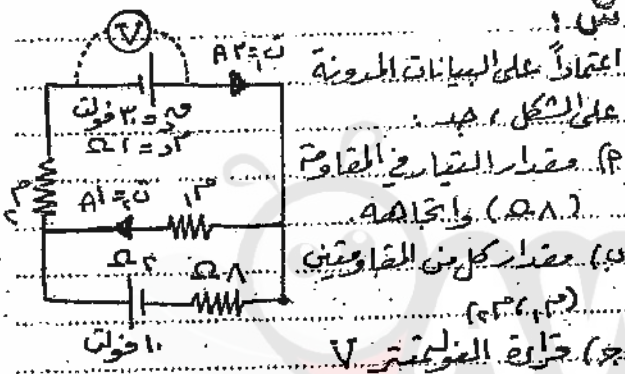 س١
اعتماداً على البيانات المدونة
على الشكل ، جد :
م) مقدار التيار في المقاومة
(٨Ω) واتجاهه.
ب) مقدار كل من المقاومتين
(م١، م٢)
ج) قراءة الفولتمتر V
V
ت = ٣A
٣٠ فولت
٢Ω
م٢
ت١ = ١A
م١
٢Ω
٨Ω
١٠ فولت